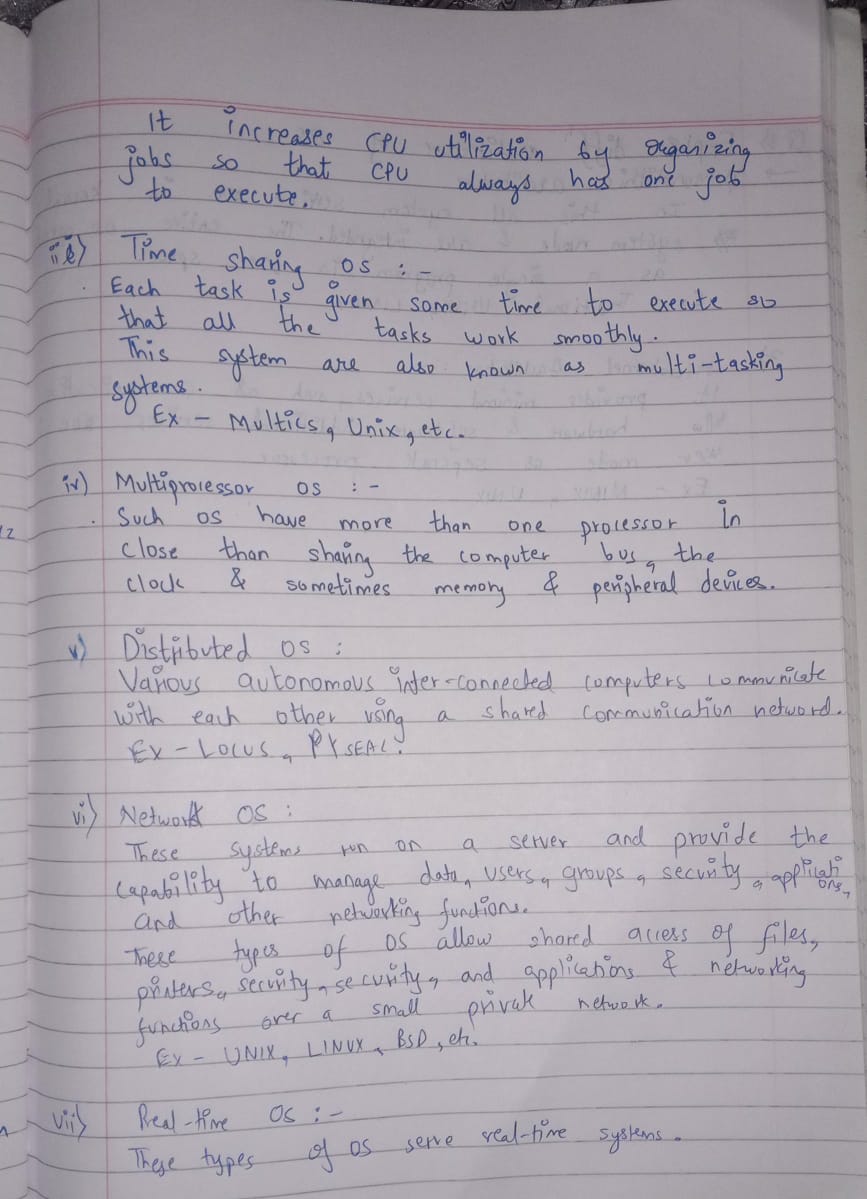 It increases CPU utilization by organizing
jobs so that CPU always has one job
to execute.
iii) Time sharing OS :-
Each task is given some time to execute so
that all the tasks work smoothly.
This system are also known as multi-tasking
systems.
Ex - Multics, Unix, etc.
iv) Multiprocessor OS :-
. Such OS have more than one processor in
close than sharing the computer bus, the
clock & sometimes memory & peripheral devices.
v) Distributed OS :
Various autonomous inter-connected computers communicate
with each other using a shared communication netword.
Ex - LOCUS,
vi) Network OS :
These systems run on a server and provide the
capability to manage data, users, groups, security, applicati
ons,
and other networking functions.
These types of OS allow shared access of files,
printers, security, security, and applications & networking
functions over a small private network.
Ex - UNIX, LINUX, BSD, etc.
vii) Real-time OS :-
These types of OS serve real-time systems.